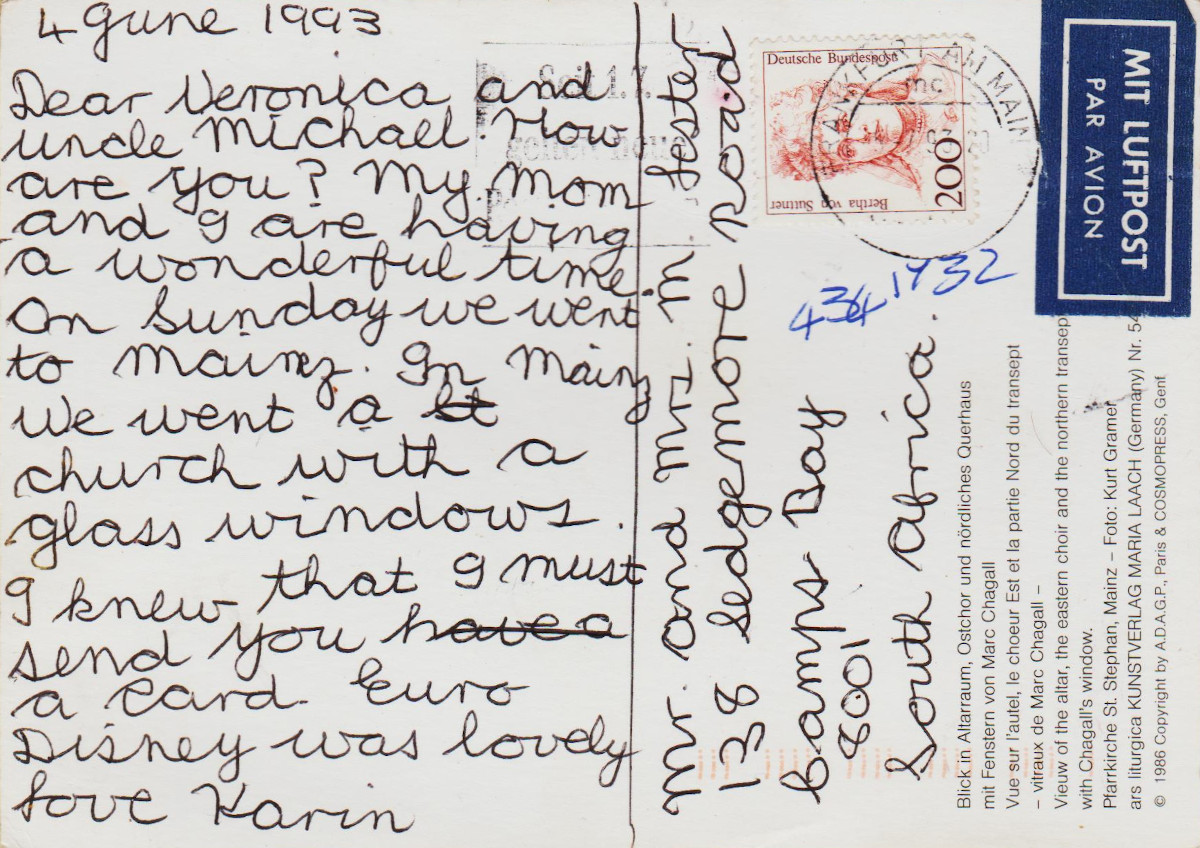 4 June 1993
Dear Veronica and
uncle Michael. How
are you? My Mom
and I are having
a wonderful time
On Sunday we went
to Mainz. In Mainz
we went a
church with a
glass windows.
I knew that I must
send you have a
a card. Euro
Disney was lovely
love Karin
Mr. and Mrs. M Fester
138 Sedgemore Road
Camps Bay
8001
South Africa.
4341432
Deutsche Bundespost
Bertha von Suttner
200
FRANKFURT AM MAIN
Seit 1.7.
MIT LUFTPOST
PAR AVION
Blick in Altarraum, Ostchor und nördliches Querhaus
mit Fenstern von Marc Chagall
Vue sur l'autel, le choeur Est et la partie Nord du transept
– vitraux de Marc Chagall –
Vieuw of the altar, the eastern choir and the northern transept
with Chagall's window.
Pfarrkirche St. Stephan, Mainz – Foto: Kurt Gramer
ars liturgica KUNSTVERLAG MARIA LAACH (Germany) Nr. 54
© 1986 Copyright by A.D.A.G.P., Paris & COSMOPRESS, Genf